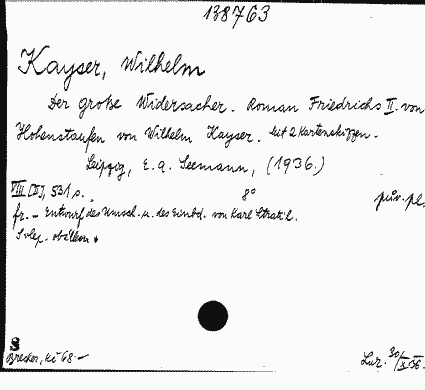 138763
Kayser, Wilhelm
Der große Widersacher. Roman Friedrichs II. von
Hohenstaufen von Wilhelm Kayser. Mit 2 Kartenskizzen.
Leipzig, E. A. Seemann, (1936.)
VIII, 531 s. 8° pův. pl.
fr. - Entwurf des Umsch. u. des Einbd. von Karl
S vlep. obálkou.
8
Kč 68.-
30/X 36.